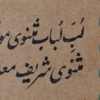 لُبِّ لُباب مثنوی مو
مثنوی شریف معن